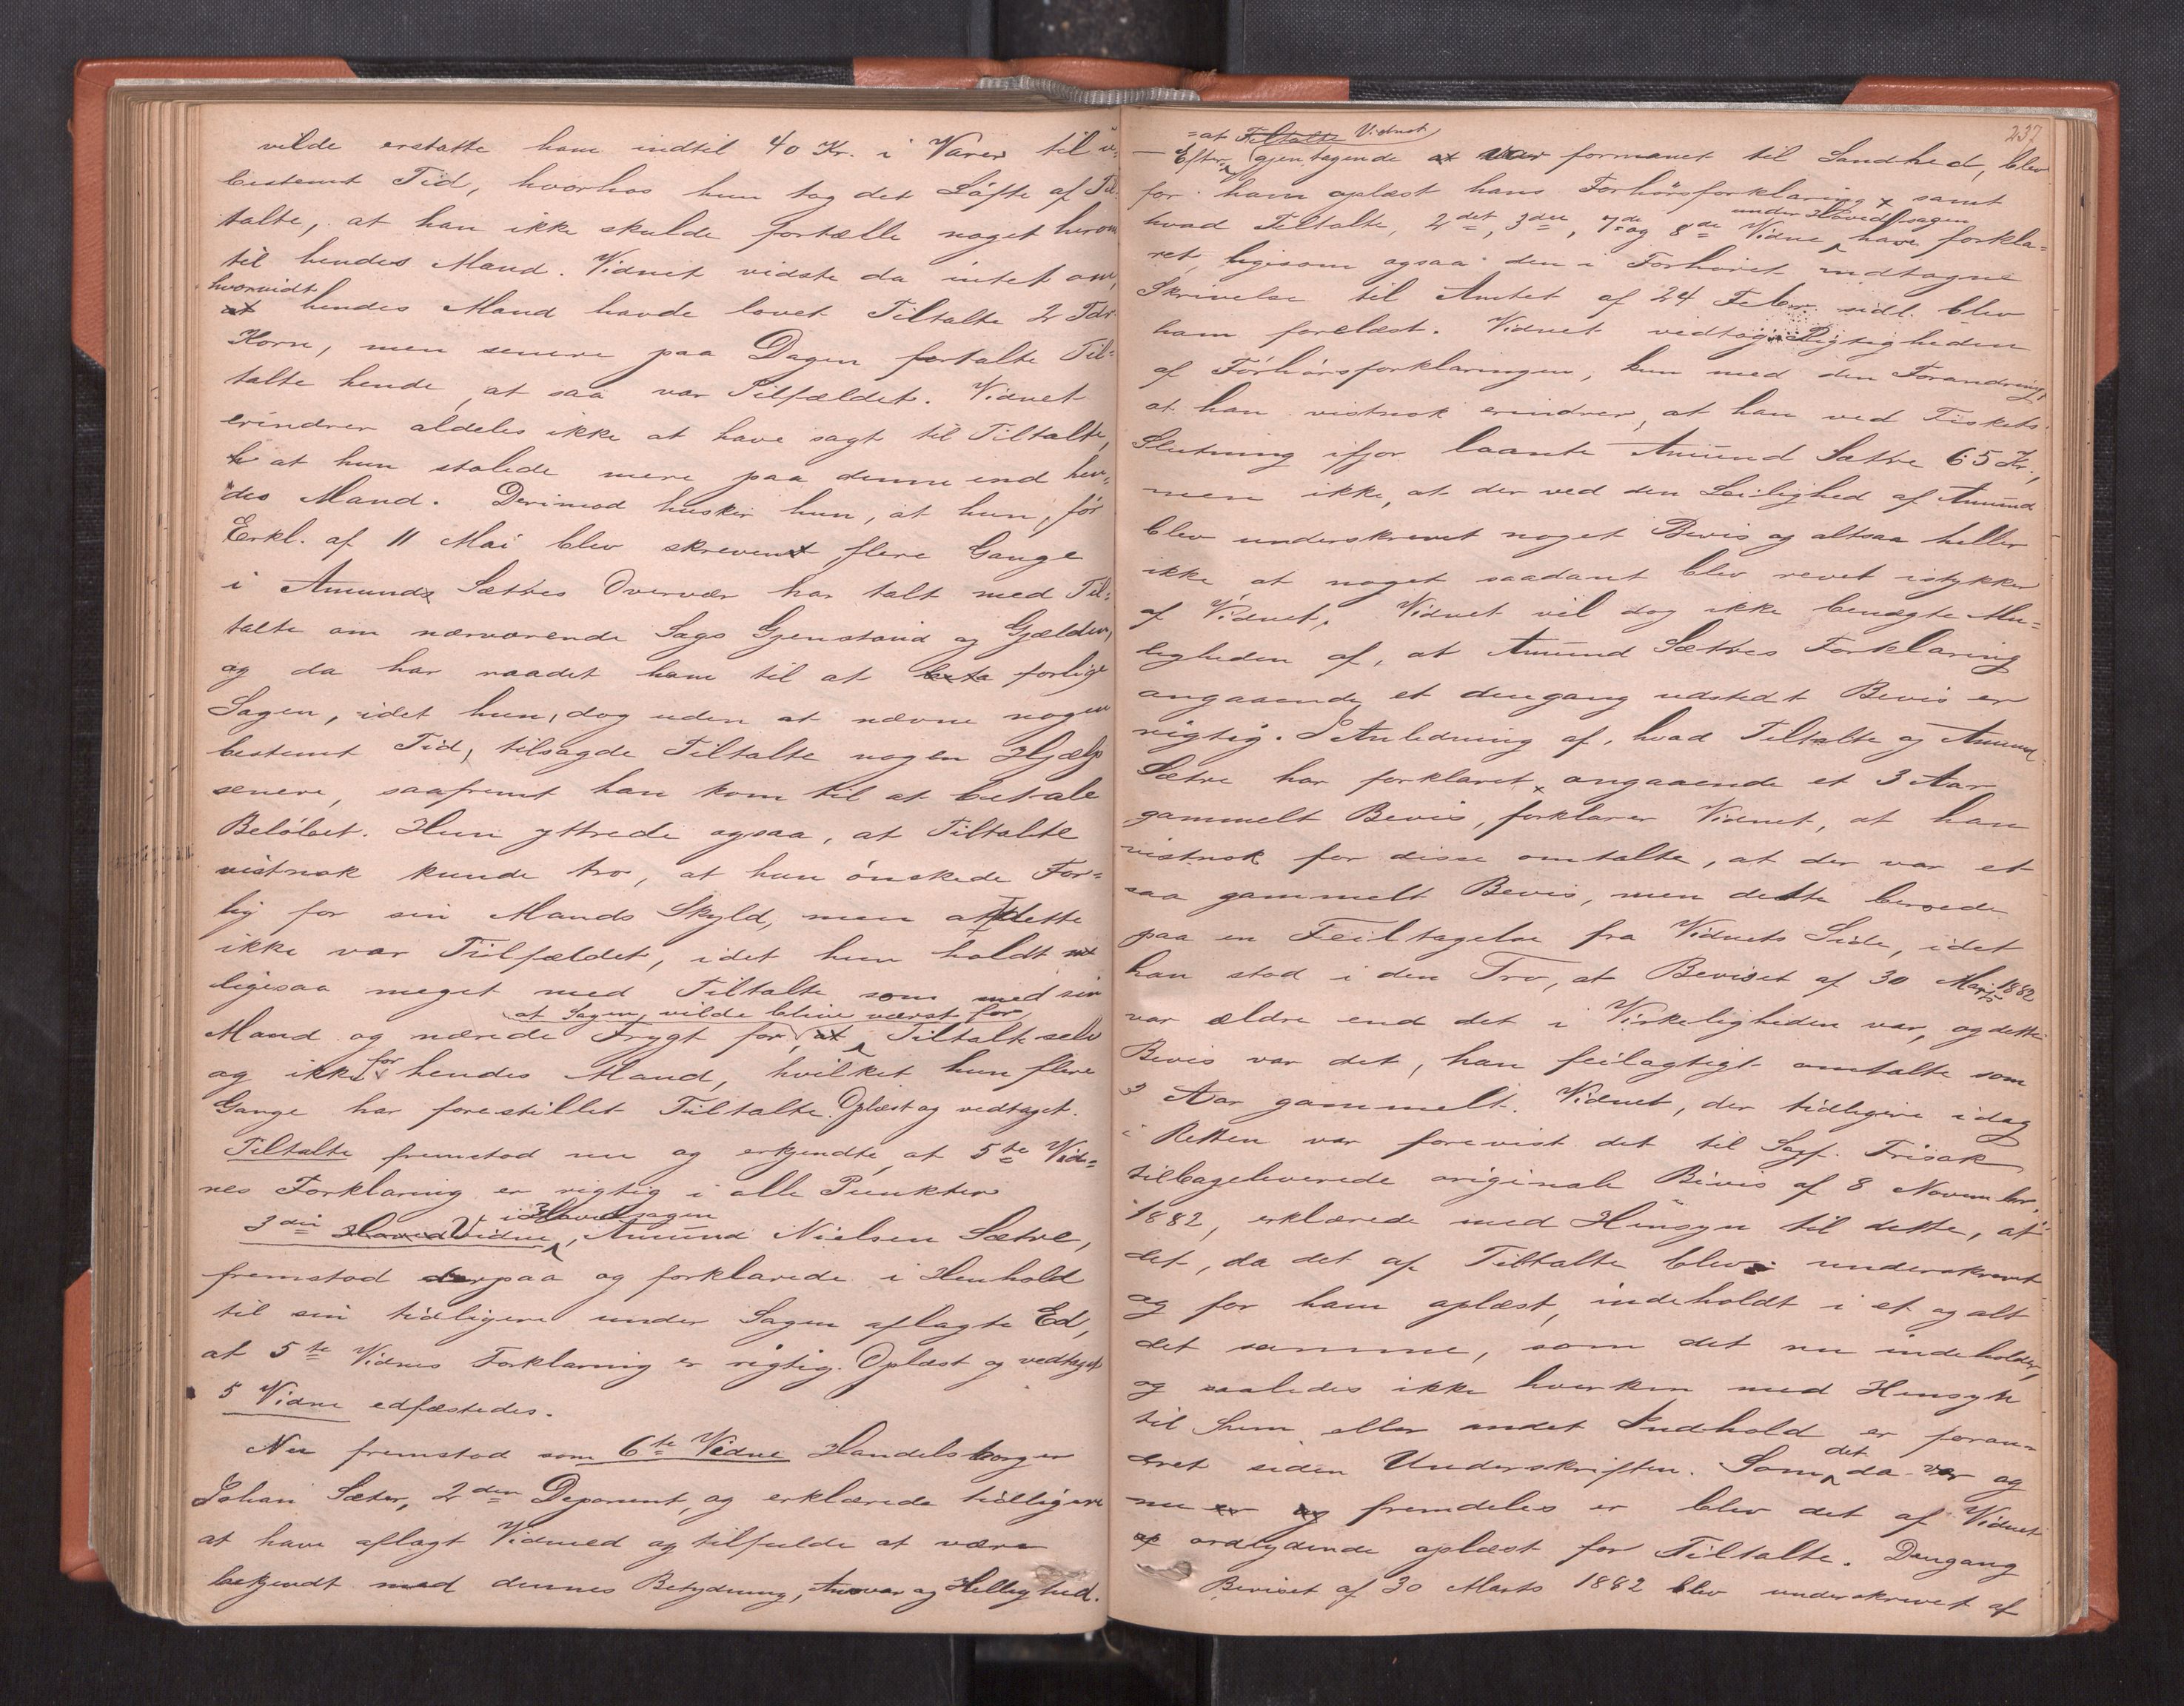 vilde erstatte ham indtil 40 Kr. i Varer til u-
bestemt Tid, hvorhos hun tog det Løfte af Til-
talte, at han ikke skulde fortælle noget herom
til hendes Mand. Vidnet vidste da intet om,
hvorvidt
at hendes Mand havde lovet Tiltalte 2 Tdr
Korn, men senere paa Dagen fortalte Til-
talte hende, at saa var Tilfældet. Vidnet
erindrer aldeles ikke at have sagt til Tiltalte,
at hun stolede mere paa denne end hen-
des Mand. Derimod husker hun, at hun, før
Erkl. af 11 Mai blev skreven, flere Gange
i Amund Sættres Overvær har talt med Til-
talte om nærværende Sags Gjenstand og Gjælden,
og da har raadet ham til at forlige
Sagen, idet hun, dog uden at nævne nogen
bestemt Tid, tilsagde Tiltalte nogen Hjælp
senere, saafremt han kom til at betale
Beløbet. Hun yttrede ogsaa, at Tiltalte
vistnok kunde tro, at hun ønskede For-
lig for sin Mands Skyld, men at dette
ikke var Tilfældet, idet hun holdt
ligesaa meget med Tiltalte som med sin
at Sagen vilde blive værst for
Mand og nærede Frygt for, at Tiltalte selv
og ikke for hendes Mand, hvilket hun flere
Gange har forestillet Tiltalte. Oplæst og vedtaget.
Tiltalte fremstod nu og erkjendte, at 5te Vid-
nes Forklaring er rigtig i alle Punkter
i Hovedsagen
3die Hoved Vidne, Amund Nielsen Sætre,
fremstod derpaa og forklarede i Henhold
til sin tidligere under Sagen aflagte Ed,
at 5te Vidnes Forklaring er rigtig. Oplæst og vedtaget
5 Vidne edfæstedes.
Nu fremstod som 6te Vidne Handelsborger
Johan Sæter, 2den Deponent, og erklærede tidligere
at have aflagt Vidneed og tilfulde at være
bekjendt med dennes Betydning, Ansvar og Hellighed.
237
= at Tiltalte Vidnet
- Efter gjentagende at var formanet til Sandhed, blev
for ham oplæst hans Forhørsforklaring samt
under Hovedsagen
hvad Tiltalte, 2det, 3die, 7de og 8de Vidne have forkla-
ret, ligesom ogsaa den i Forhøret indtagne
Skrivelse til Amtet af 24 Febr. sidl. blev
ham forelæst. Vidnet vedtog Rigtigheden
af Forhørsforklaringen, kun med den Forandring,
at han vistnok erindrer, at han ved Fiskets
Slutning ifjor laante Amund Sætre 65 Kr.,
men ikke, at der ved den Leilighed af Amund
blev underskrevet noget Bevis og altsaa heller
ikke, at noget saadant blev revet istykker
af Vidnet. Vidnet vil dog ikke benægte Mu-
ligheden af, at Amund Sættres Forklaring
angaaende et dengang udstedt Bevis er
rigtig. I Anledning af, hvad Tiltalte og Amund
Sætre har forklaret angaaende et 3 Aar
gammelt Bevis, forklarer Vidnet, at han
vistnok for disse omtalte, at der var et
saa gammelt Bevis, men dette beroede
paa en Feiltagelse fra Vidnets Side, idet
han stod i den Tro, at Beviset af 30 Marts 1882
var ældre end det i Virkeligheden var, og dette
Bevis var det, han feilagtigt omtalte som
3 Aar gammelt. Vidnet, der tidligere idag
i Retten var forevist det til Sagf. Frisak
tilbageleverede originale Bevis af 8 November
1882, erklærede med Hensyn til dette, at
det, da det af Tiltalte blev underskrevet
og for ham oplæst, indeholdt i et og alt
det samme, som det nu indeholder,
og saaledes ikke hverken med Hensyn
til Sum eller andet Indhold er foran-
dret siden Underskriften. Som det da var og
nu er og fremdeles er blev det af Vidnet
op ordlydende oplæst for Tiltalte. Dengang
Beviset af 30 Marts 1882 blev underskrevet af